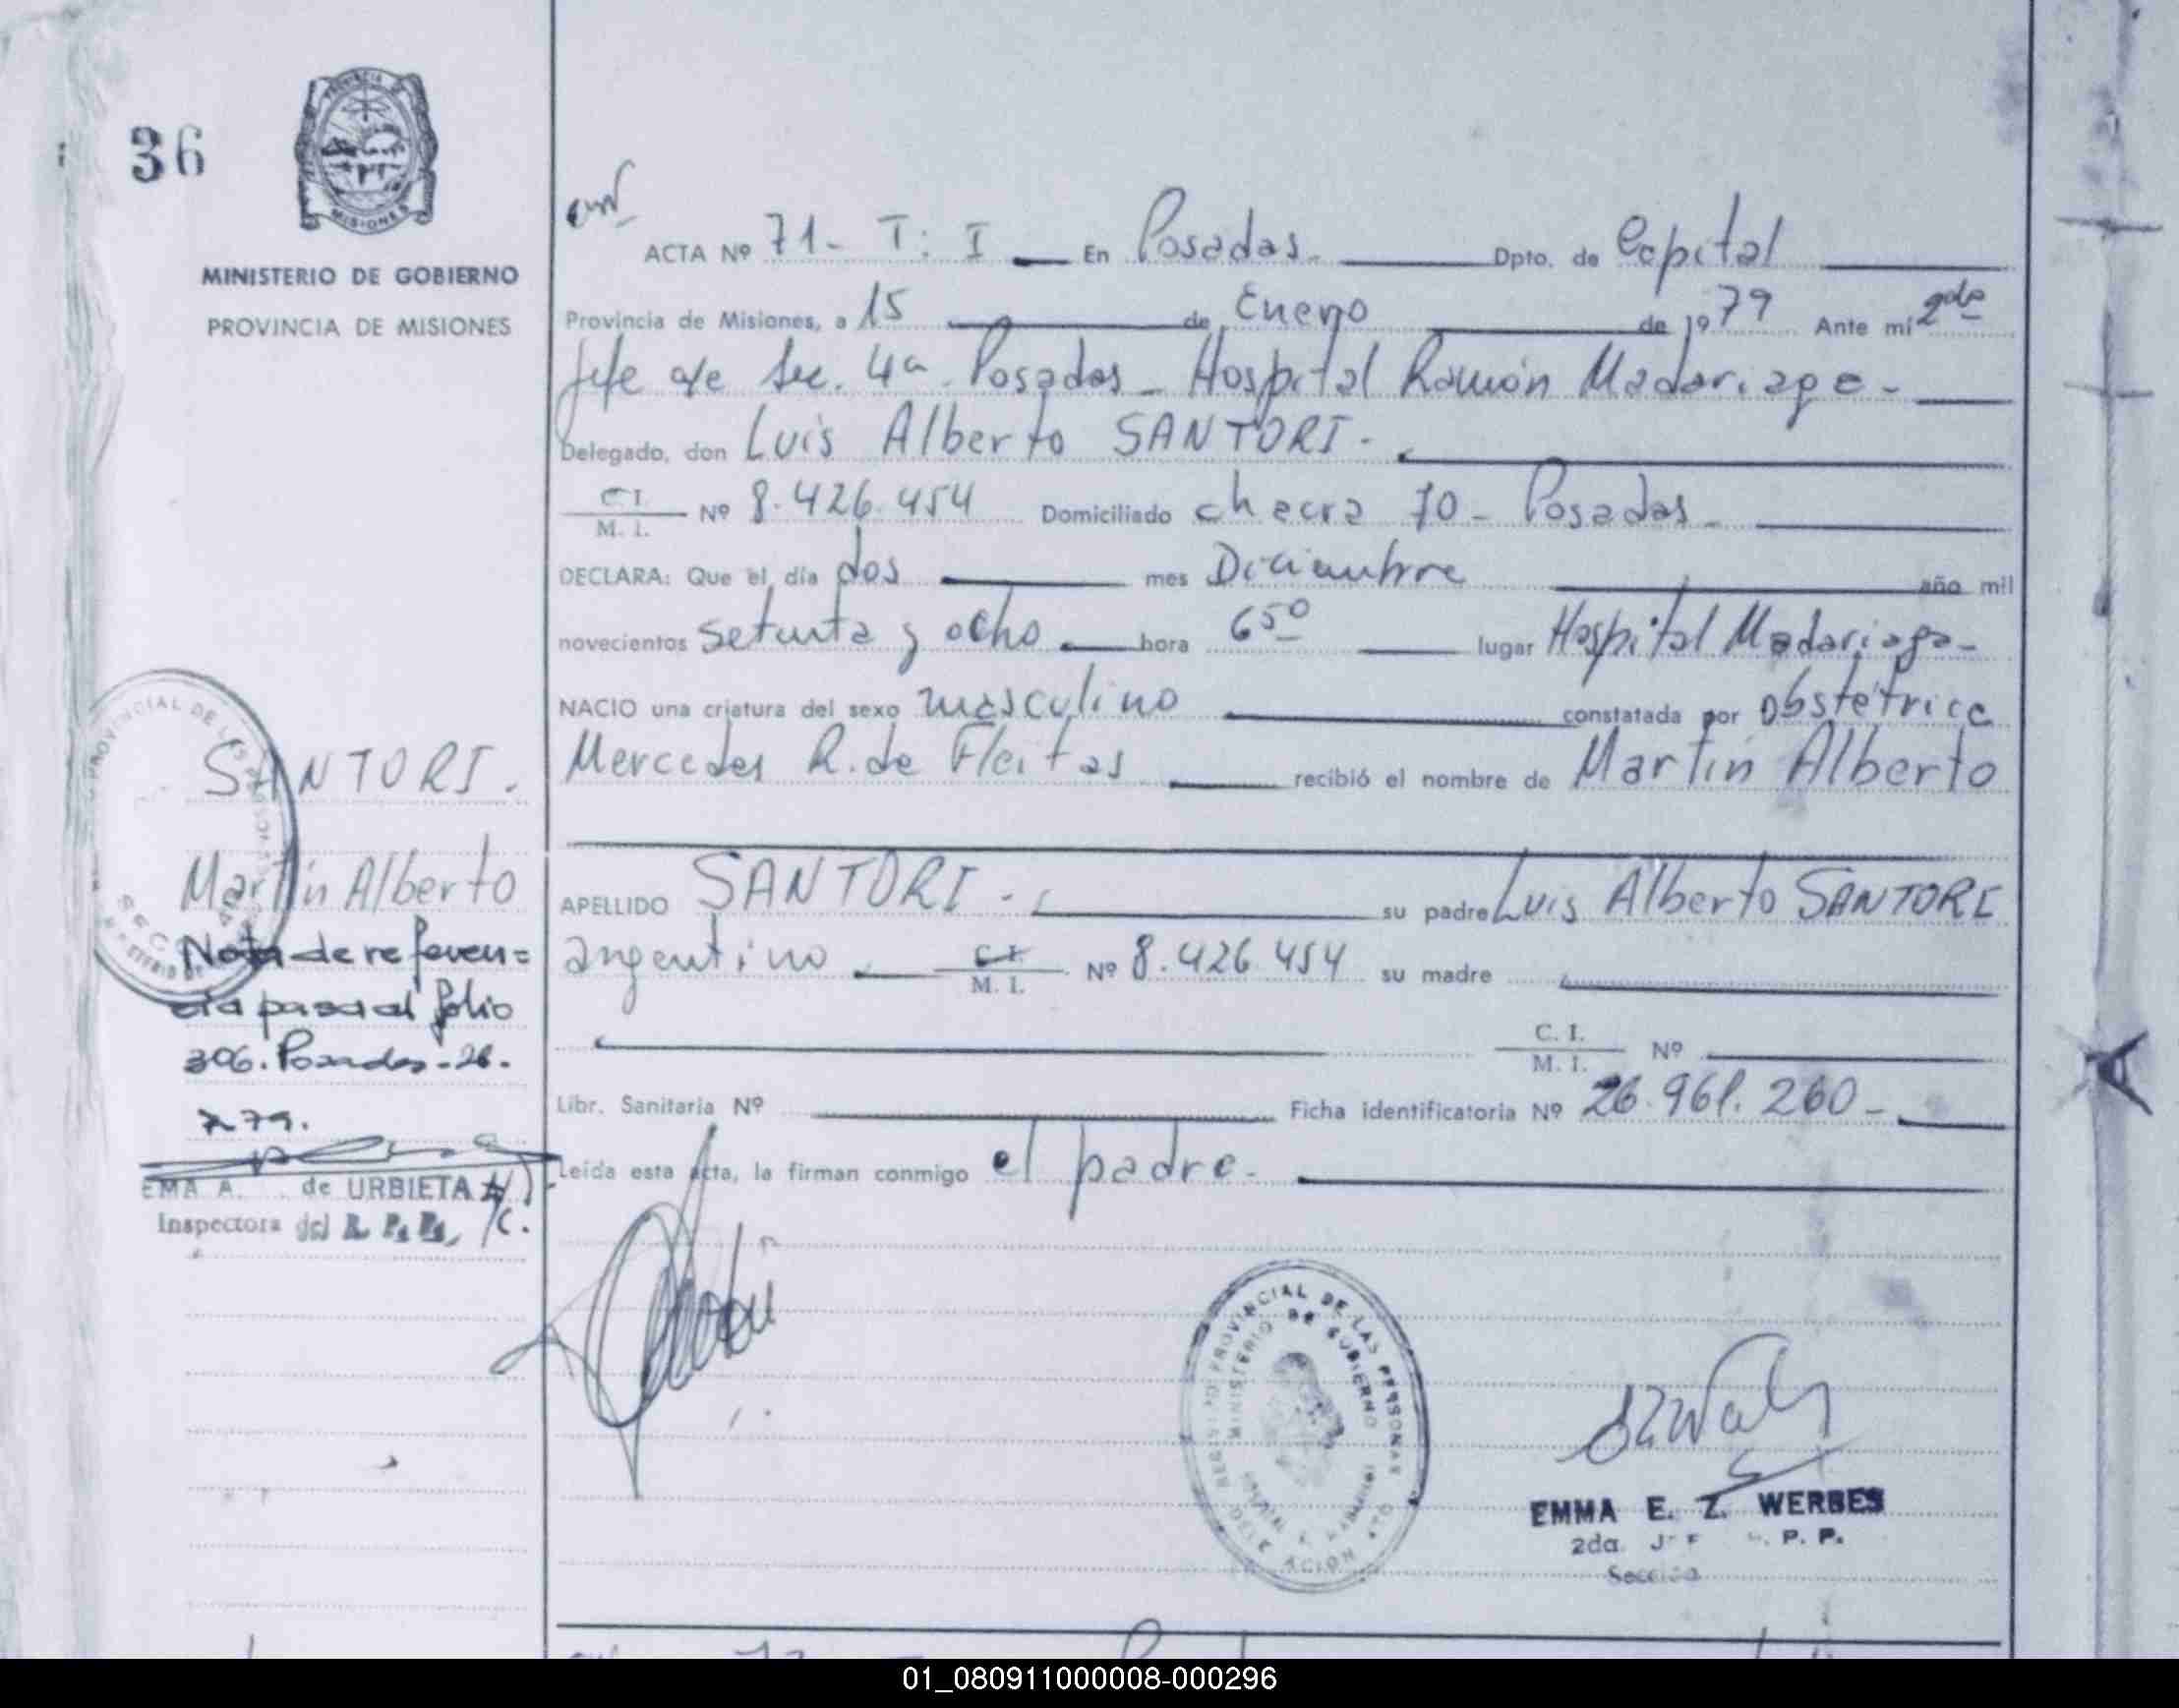 36
PROVINCIA DE
MISIONES
MINISTERIO DE GOBIERNO
PROVINCIA DE MISIONES
ACTA Nº 71- T: I En Posadas. Dpto. de Capital
Provincia de Misiones, a 15 de Enero de 1979 Ante mi 2da
Jefe de Sec. 4a. Posadas - Hospital Ramón Madariaga -
Delegado, don Luis Alberto SANTORI -
C.I. / M. I. Nº 8.426.454 Domiciliado chacra 70 - Posadas -
DECLARA: Que el día dos mes Diciembre año mil
novecientos setenta y ocho hora 6⁵⁰ lugar Hospital Madariaga -
NACIO una criatura del sexo masculino constatada por obstétrica
Mercedes R. de Fleitas recibió el nombre de Martín Alberto
APELLIDO SANTORI - su padre Luis Alberto SANTORI
argentino C.I. / M. I. Nº 8.426.454 su madre
C. I. / M. I. Nº
Libr. Sanitaria Nº Ficha identificatoria Nº 26.961.260 -
Leída esta acta, la firman conmigo el padre -
SANTORI.
Martín Alberto
Nota de referen=
cia pasa al folio
306. Posadas - 26.
2 79.
EMA A. de URBIETA
Inspectora del R. P. P. /C.
REGISTRO PROVINCIAL DE LAS PERSONAS
MINISTERIO DE GOBIERNO
EMMA E. Z. WERBES
2da. P. P.
Sección
01_080911000008-000296